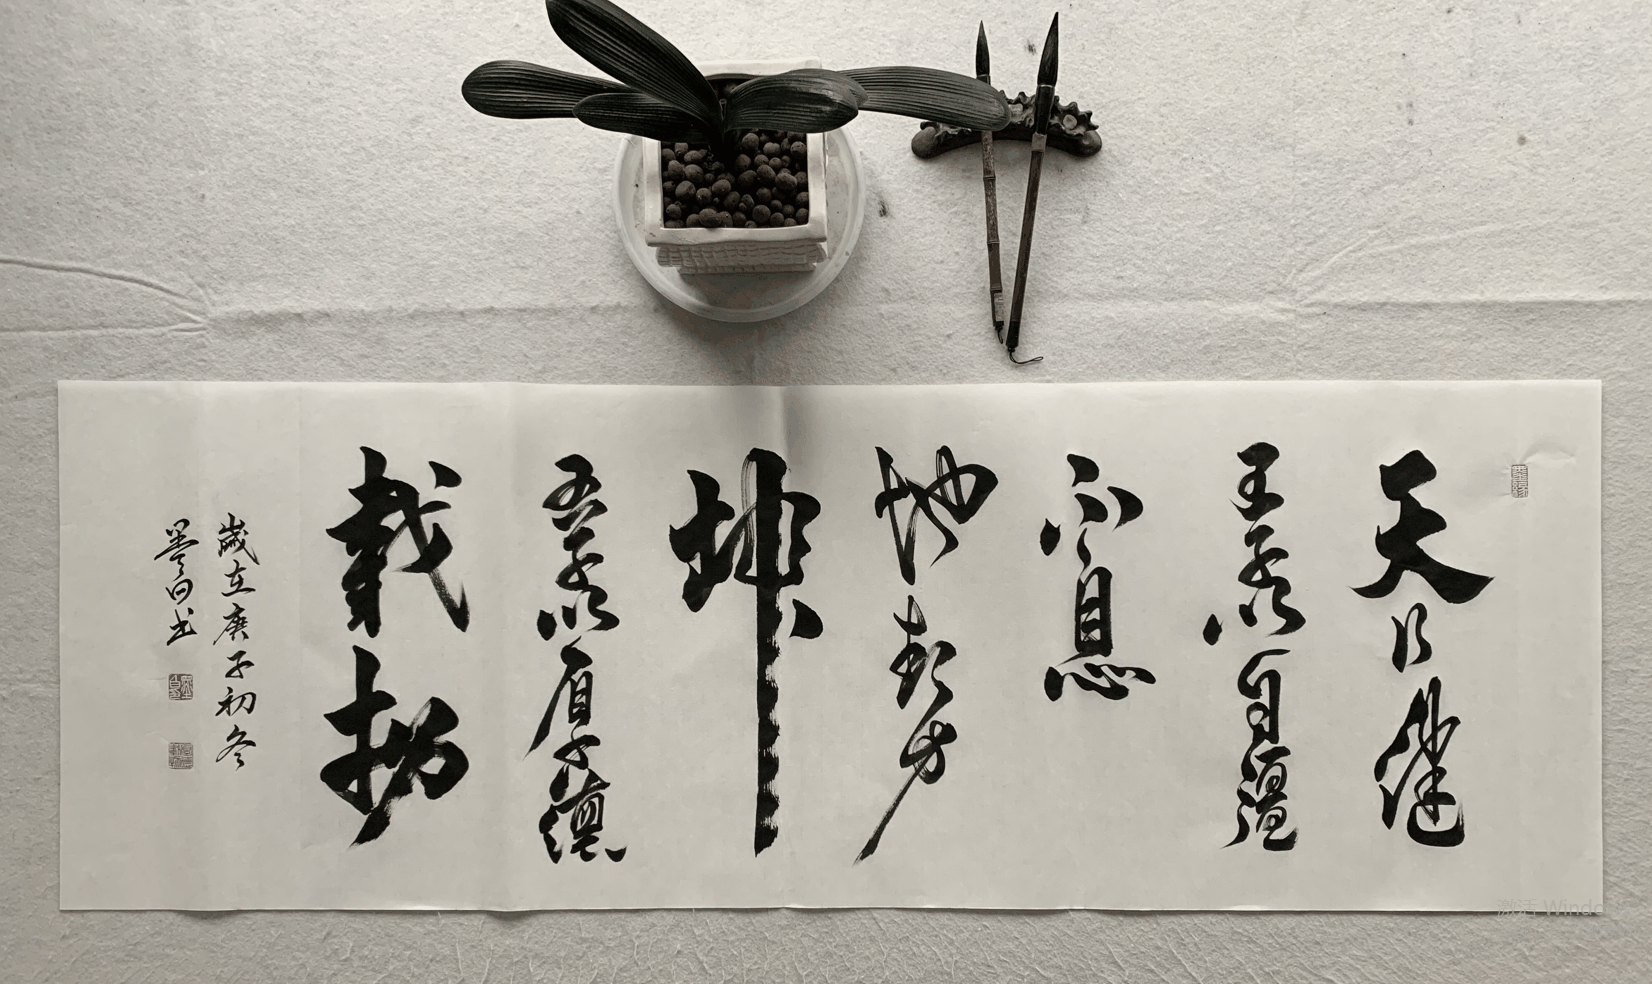 天行健
君子以自強
不息
地勢
坤
君子以厚德
載物
歲在庚子初冬
墨白书
激活 Windo